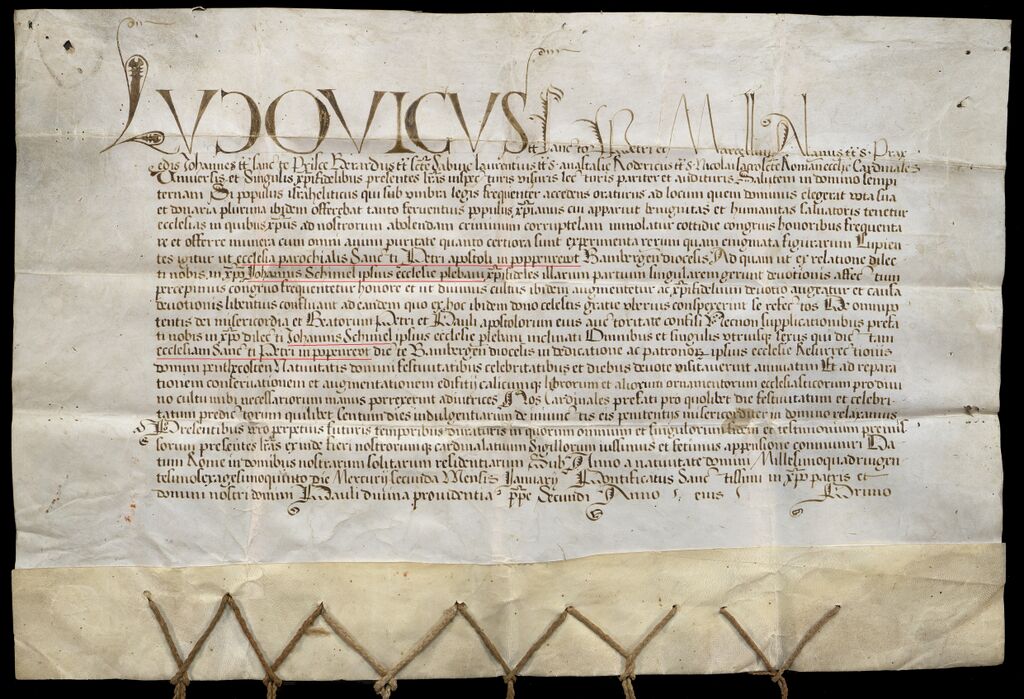 LUDOVICVS tt̄ Sanctorum Petri et Marcellini Alanus tt̄ S. Prax
edis Johannes tt̄ Sancte Prisce Berardus tt̄ Scte Sabine Laurentius tt̄ S. anastasie Rodericus tt̄ S. Nicolai Sacrosancte Romane ecclie Cardinales
Universis et Singulis xp̄ifidelibus presentes lr̄as inspecturis visuris lecturis pariter et audituris Salutem in domino sempi
ternam Si populus israheliticus qui sub umbra legis frequenter accedens oraturus ad locum quem dominus elegerat vota sua
et donaria plurima ibidem offerebat tanto feruentius populus xp̄ianus cui apparuit benignitas et humanitas saluatoris tenetur
ecclesias in quibus xp̄us ad nostrorum abolendam criminum corruptelam immolatur cottidie congruis honoribus frequenta
re et offerre munera cum omni animi puritate quanto certiora sunt experimenta rerum quam enigmata figurarum Cupien
tes igitur ut ecclesia parochialis Sancti Petri apostoli in poppenrewt Bambergen diocesis Ad quam ut ex relatione dilec
ti nobis in xp̄o Johannis Schimel ipsius ecclesie plebani xp̄ifideles illarum partium singularem gerunt deuotionis affectum
percepimus congruo frequentetur honore et ut diuinus cultus ibidem augmentetur ac xp̄ifidelium deuotio augeatur et causa
deuotionis libentius confluant ad eandem quo ex hoc ibidem dono celestis gratie uberius conspexerint se refectos De omnipo
tentis dei misericordia et Beatorum Petri et Pauli apostolorum eius auctoritate confisi Necnon supplicationibus prefa
ti nobis in xp̄o dilecti Johannis Schimel ipsius ecclesie plebani inclinati Omnibus et singulis utriusque sexus qui dictam
ecclesiam Sancti Petri in poppenrewt dicte Bambergen diocesis in dedicatione ac patronorum ipsius ecclesie Resurrectionis
domini penthecosten Natiuitatis domini festiuitatibus celebritatibus et diebus deuote visitauerint annuatim Et ad repara
tionem conseruationem et augmentationem edifitii calicumque librorum et aliorum ornamentorum ecclesiasticorum pro diui
no cultu inibi necessariorum manus porrexerint adiutrices Nos Cardinales prefati pro quolibet die festiuitatum et celebri
tatum predictorum quilibet Centum dies indulgentiarum de iniunctis eis penitentiis misericorditer in domino relaxamus
Presentibus vero perpetuis futuris temporibus duraturis in quorum omnium et singulorum fidem et testimonium premis
sorum presentes lr̄as exinde fieri nostrorumque cardinalatuum Sigillorum iussimus et fecimus appensione communiri Da
tum Rome in domibus nostrarum solitarum residentiarum Sub Anno a natiuitate domini Millesimoquadringen
tesimosexagesimoquinto die Mercurii secunda Mensis January Pontificatus Sanctissimi in xp̄o patris et
domini nostri domini Pauli diuina prouidentia ppe Secundi Anno eius Primo